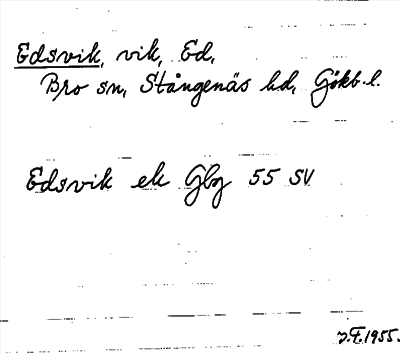 Edsvik, vik, Ed,
Bro sn, Stångenäs hd, Gökb. l.
Edsvik ek Gbg 55 SV
J.F. 1955.